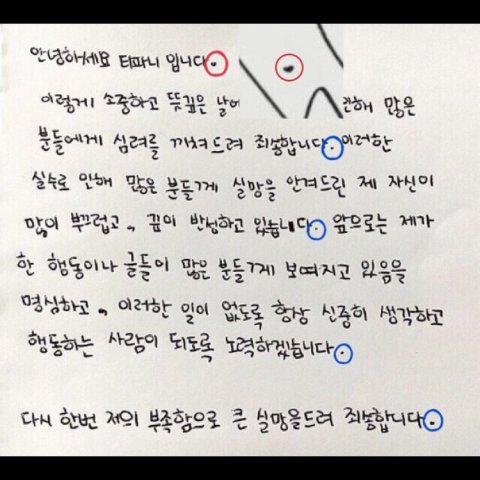 안녕하세요 티파니 입니다.
이렇게 소중하고 뜻깊은 날에 많은
분들에게 심려를 끼쳐드려 죄송합니다. 이러한
실수로 인해 많은 분들께 실망을 안겨드린 제 자신이
많이 부끄럽고, 깊이 반성하고 있습니다. 앞으로는 제가
한 행동이나 글들이 많은 분들께 보여지고 있음을
명심하고, 이러한 일이 없도록 항상 신중히 생각하고
행동하는 사람이 되도록 노력하겠습니다.
다시 한번 저의 부족함으로 큰 실망을드려 죄송합니다.